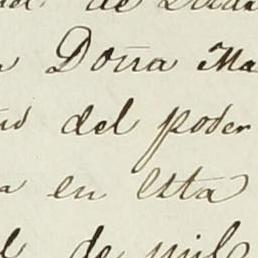 de
Doña Ma
del poder
en esta
de mil